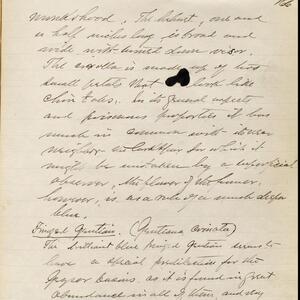 monkshood. The helmet, one and
a half inches long is broad and
wide with turned down visor.
The corolla is made up of two
small petals that look like
chin tabs. In its general aspects
and poisonous properties it has
much in common with its near
neighbor the larkspur for which it
might be mistaken by a superficial
observer, the flower of the former,
however, is as a rule of a much deeper
blue.
Fringed Gentian. (Gentiana
The brilliant blue fringed gentian seems to
have a special predilection for the
Geyser basins as it is found in great
abundance in all of them and